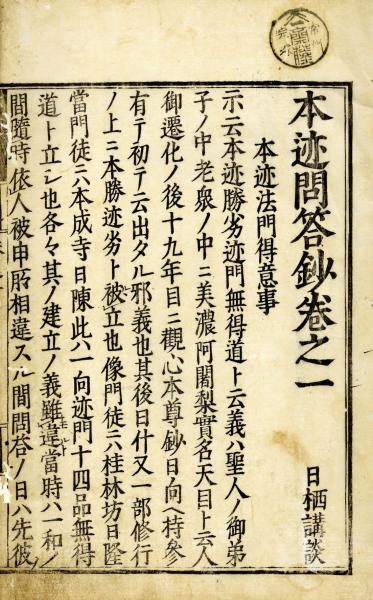 本迹問答鈔卷之一
日栖講談
本迹法門得意事
示云本迹勝劣迹門無得道ト云義ハ聖人ノ御弟
子ノ中老衆ノ中ニ美濃阿闍梨實名天目ト云人
御遷化ノ後十九年目ニ觀心本尊鈔日向ヘ持參
有テ初テ云出タル邪義也其後日什又一部修行
ノ上ニ本勝迹劣ト被立也像門徒ニハ桂林坊日隆
當門徒ニハ本成寺日陳此六一向迹門十四品無得
道ト立シ也各々其ノ建立ノ義雖違當時ハ一和ノ
間隨時依人被申所相違スル間問答ノ日ハ先彼